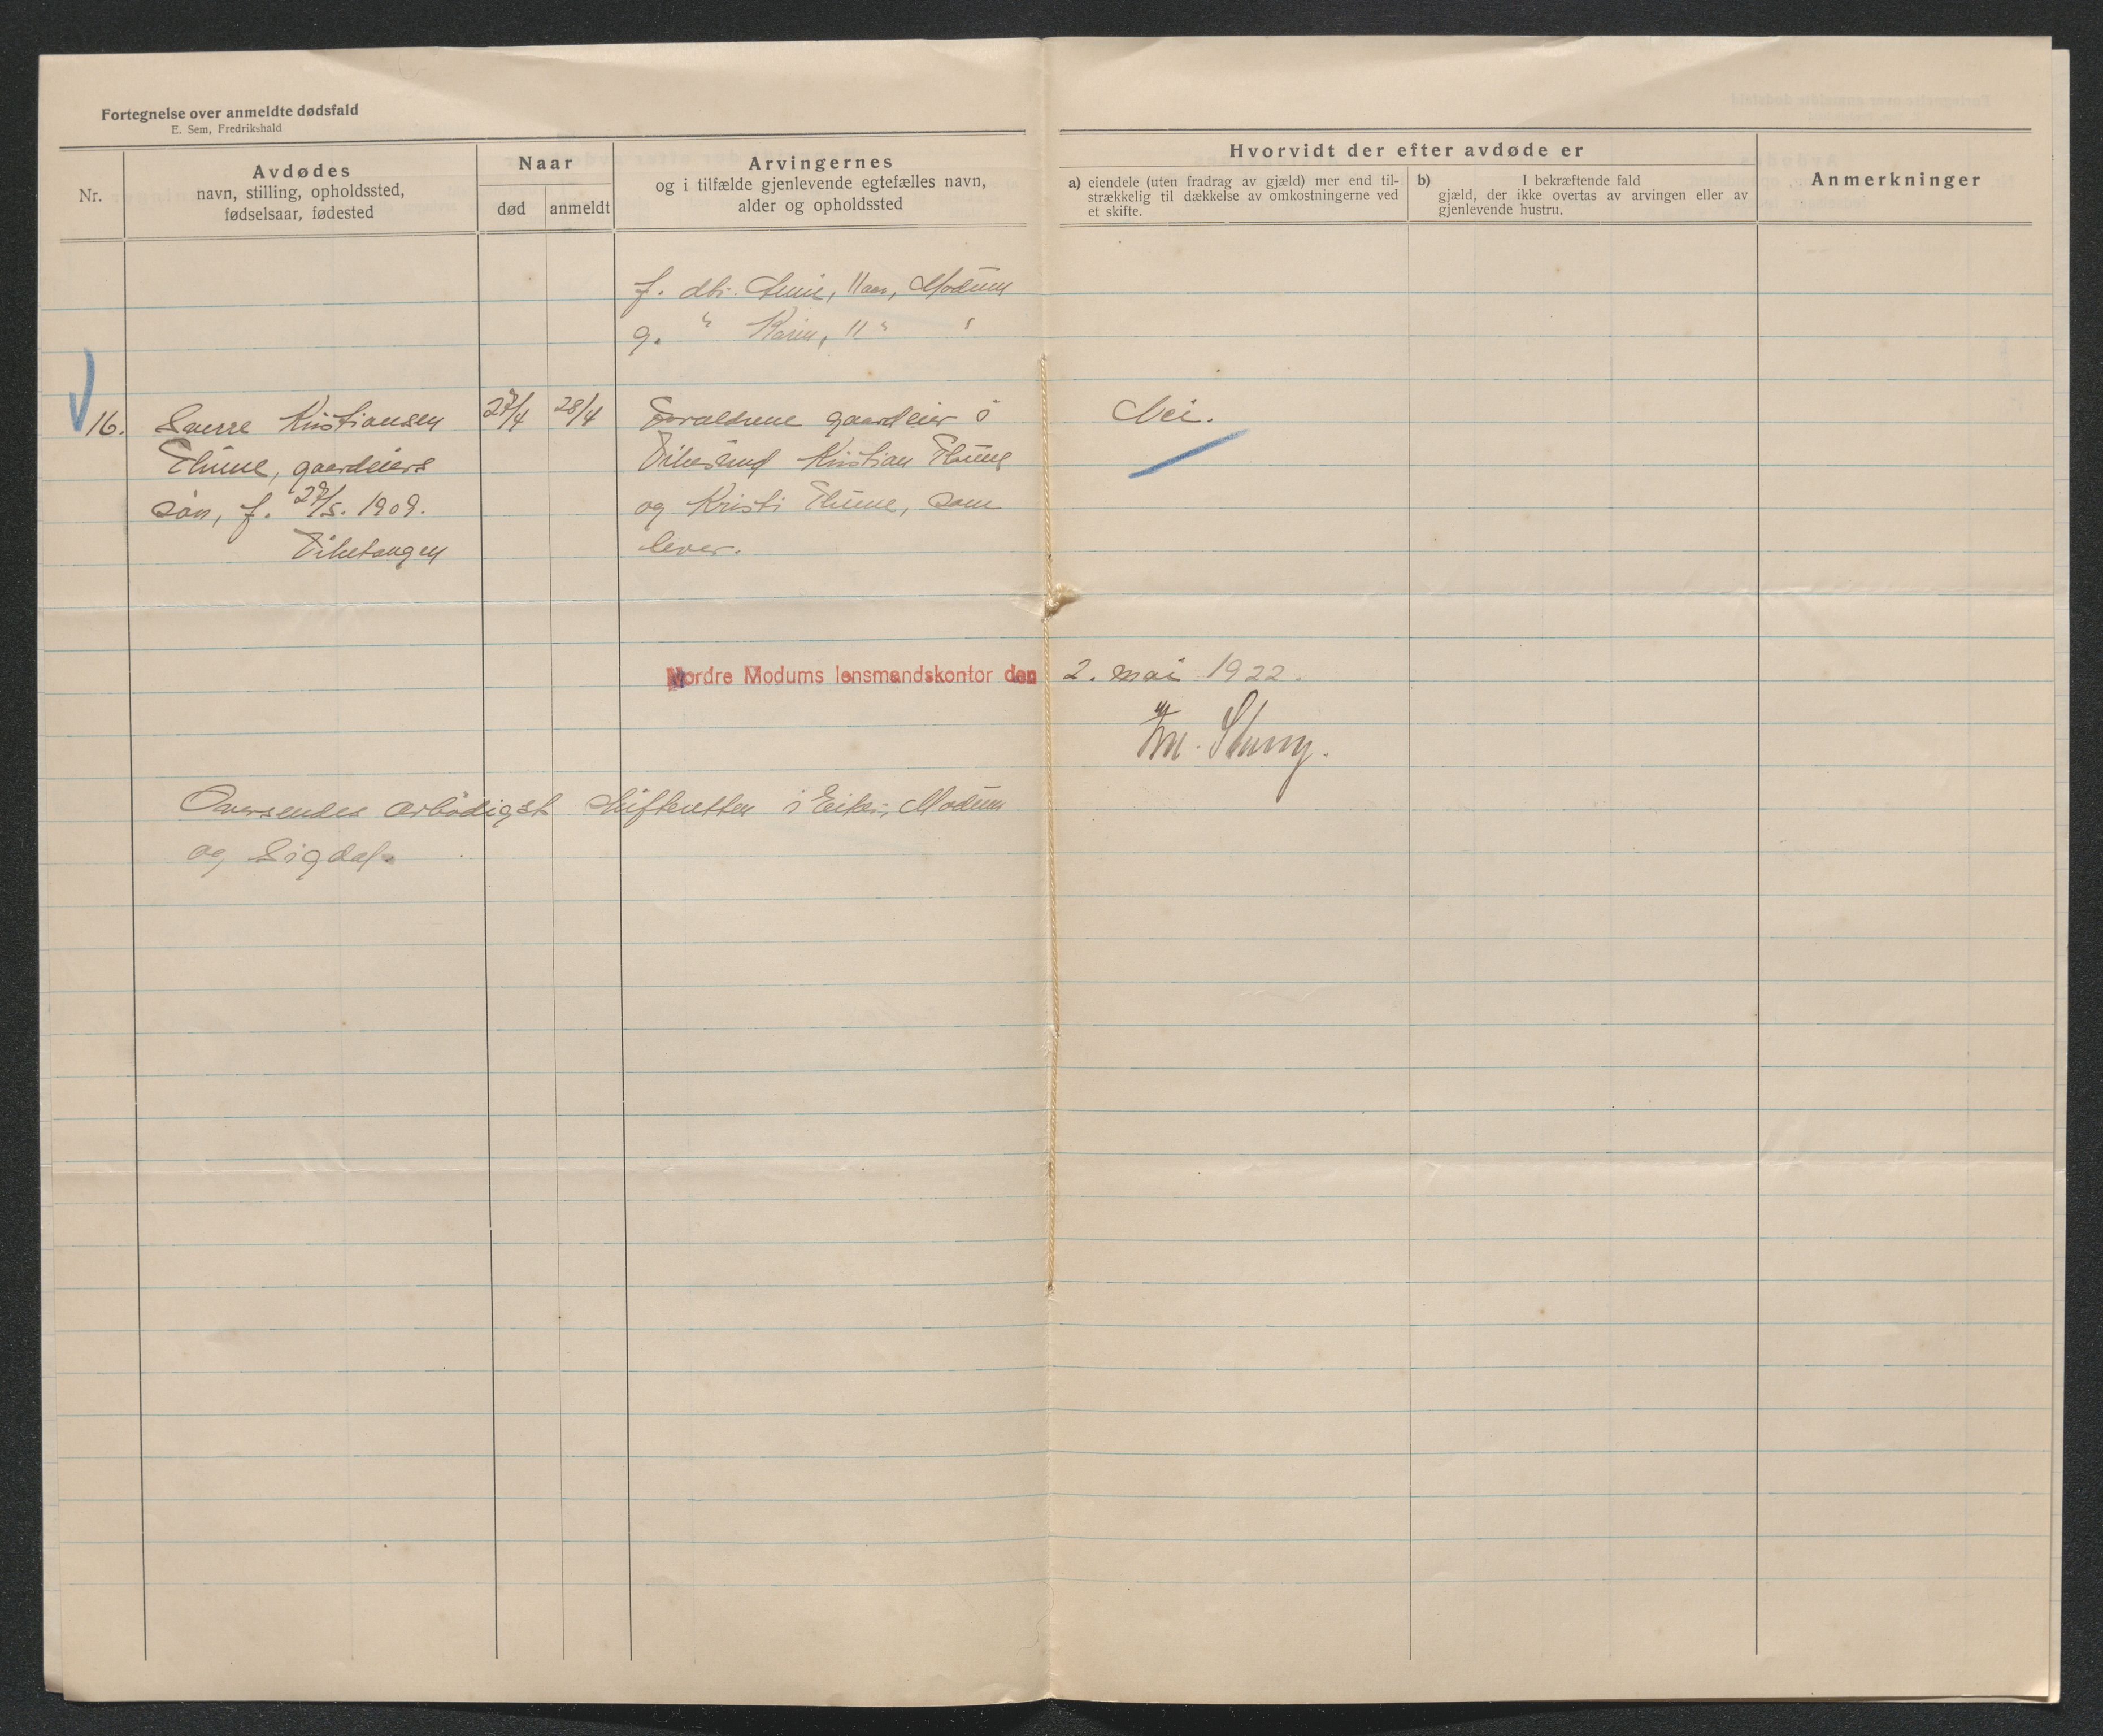 Fortegnelse over anmeldte dødsfald
E. Sem, Fredrikshald
Nr.
Avdødes
navn, stilling, opholdssted,
fødselsaar, fødested
Naar
død
anmeldt
Arvingernes
og i tilfælde gjenlevende egtefælles navn,
alder og opholdssted
Hvorvidt der efter avdøde er
a) eiendele (uten fradrag av gjæld) mer end til-
strækkelig til dækkelse av omkostningerne ved
et skifte.
b) I bekræftende fald
gjæld, der ikke overtas av arvingen eller av
gjenlevende hustru.
Anmerkninger
f. dtr. 11 aar, Modum
g. " Karin, 11 " "
16. Sverre Kristiansen
Thune, gaardeiers
søn, f. 27/5. 1909.
Viketangen
27/4
28/4
Forældrene gaardeier i
Vikesund Kristian Thune
og Kristi Thune, som
lever.
Nei.
Nordre Modums lensmandskontor den 2. mai 1922.
Oversendes ærbødigst skifteretten i Eiker, Modum
og Sigdal.